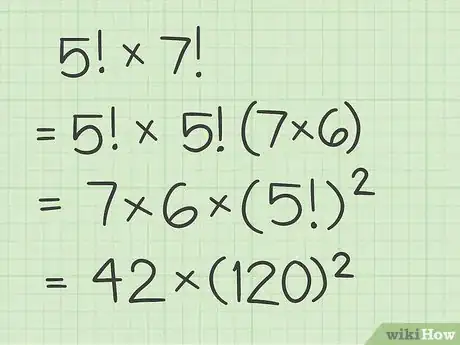 5! × 7!
= 5! × 5! (7×6)
= 7×6×(5!)²
= 42×(120)²
wikiHow